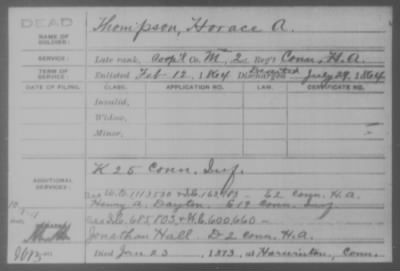 DEAD
NAME OF SOLDIER:
Thompson, Horace A.
SERVICE:
Late rank, Corp'l Co. M, 2 Reg't Conn. H.A.
TERM OF SERVICE:
Enlisted Feb 12, 1864 Deserted Discharged July 29, 1864
DATE OF FILING. CLASS. APPLICATION NO. LAW. CERTIFICATE NO.
Invalid,
Widow,
Minor,
ADDITIONAL SERVICES:
K 25 Conn. Inf.
E 2 Conn. H.A.
Henry A. Dayton. E 19 Conn. Inf
685,803 600,660
Jonathan Hall. D 2 Conn. H.A.
Died Jan 23, 1873, at Harwinton, Conn.